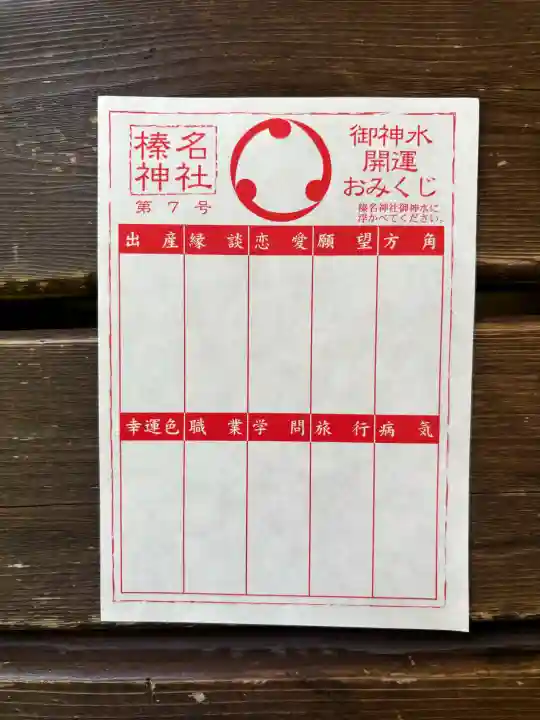 榛名
神社
第7号
御神水
開運
おみくじ
榛名神社御神水に
浮かべてください。
出産 縁談 恋愛 願望 方角
幸運色 職業 学問 旅行 病気